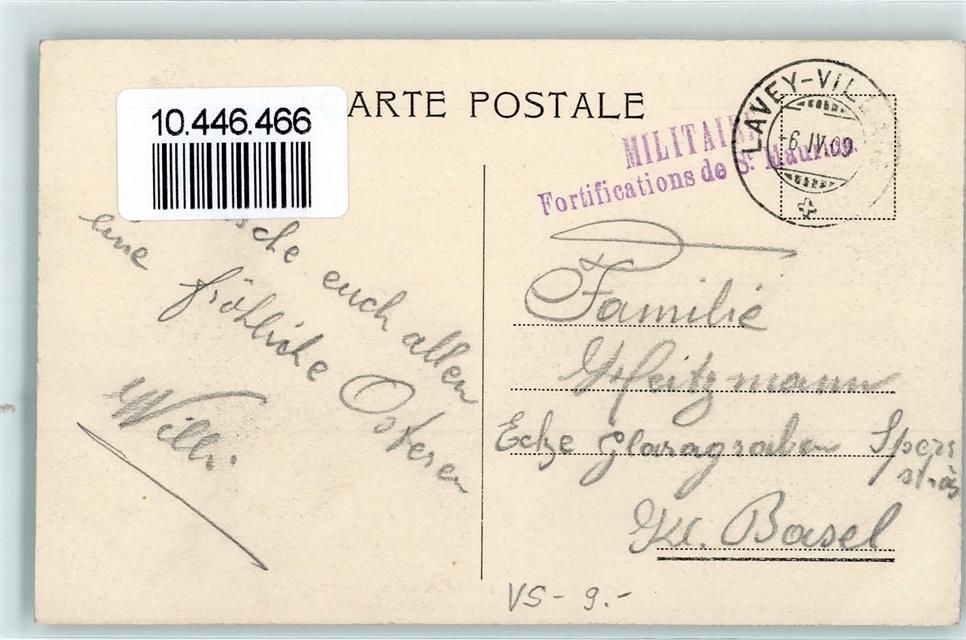 10.446.466
ARTE POSTALE
MILITAI
Fortifications de St. Maurice.
LAVEY-VILL
-6.IV.09
sche euch allen
eine fröhliche Osteren
Willi.
Familie
Heitzmann
Ecke Glaragraben Sperr
stras
Kl. Basel
VS - 9.-